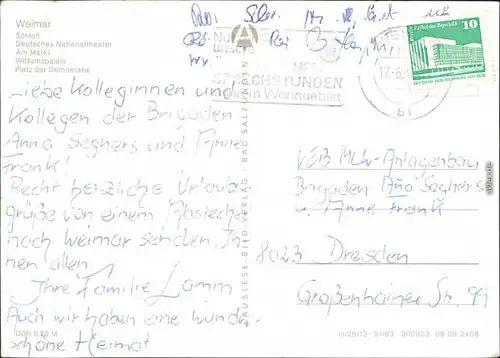 Weimar
Schloß
Deutsches Nationaltheater
Am Markt
Wittumspalais
Platz der Demokratie
Liebe Kolleginnen und
Kollegen der Brigaden
Anna Seghers und Anne
Frank!
Recht herzliche Urlaubs
grüße von einem Abstecher
nach Weimar senden Ih
nen allen
Ihre Familie Lamm
Auch wir haben eine wunder
schöne Heimat
DDR 0,20 M
AUSLESE-BILD-VERLAG · BAD SALZUNGEN
Nutzt
unsere
SPRECHSTUNDEN
im Wohngebiet
17.6.
bi
10
VEB MLW-Anlagenbau
Brigaden Anna Seghers
u. Anne Frank
8023 Dresden
Großenhainer Str. 9
III/26/13 300023 09 08 2406